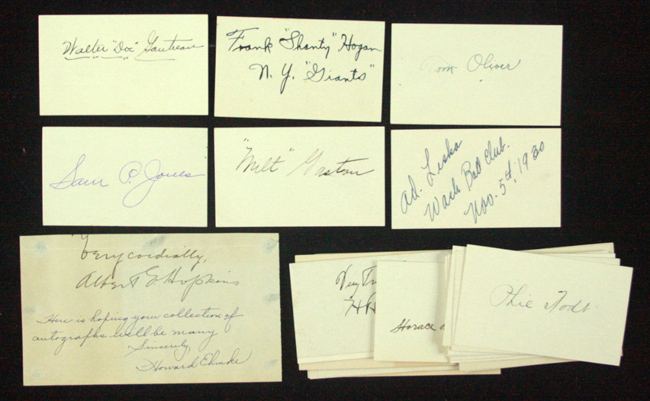 Walter "Doc" Gautreau
Frank "Shanty" Hogan
N. Y. "Giants"
Tom Oliver
Sam P. Jones
"Milt" Gaston
Ad. Liska
Wash Ball Club.
Nov. 5th, 1930
Very cordially,
Albert G Hopkins
Here is hoping your collection of
autographs will be many
Sincerely,
Howard Ehmke
Very
Horace
Phil Todt